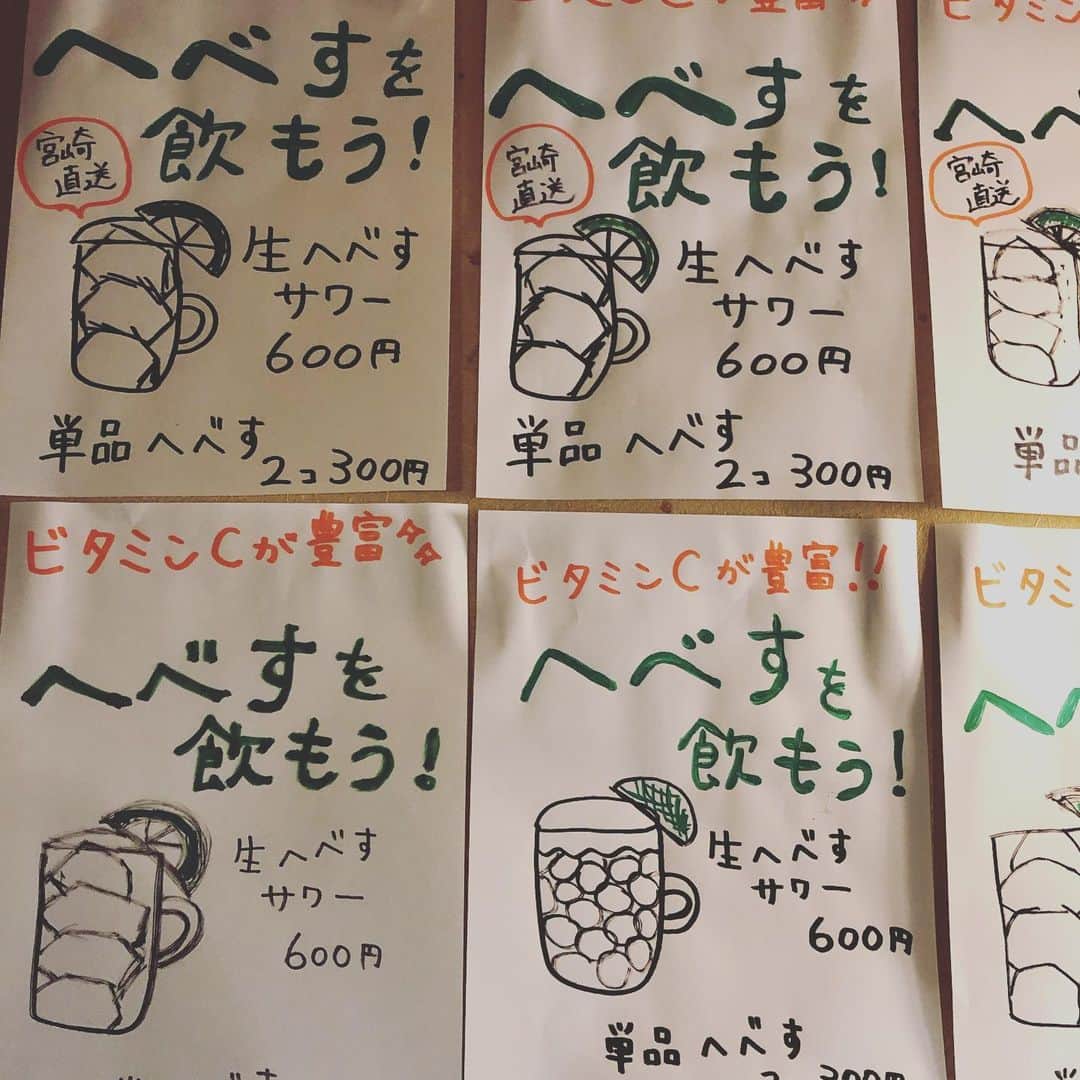 へべすを
飲もう!
宮崎
直送
生へべす
サワー
600円
単品 へべす
2コ 300円
へべすを
飲もう!
宮崎
直送
生へべす
サワー
600円
単品 へべす
2コ 300円
ビタミン
へべ
宮崎
直送
単品
ビタミンCが豊富
へべすを
飲もう!
生へべす
サワー
600円
ビタミンCが豊富!!
へべすを
飲もう!
生へべす
サワー
600円
単品 へべす
2コ 300円
ビタミン
へ